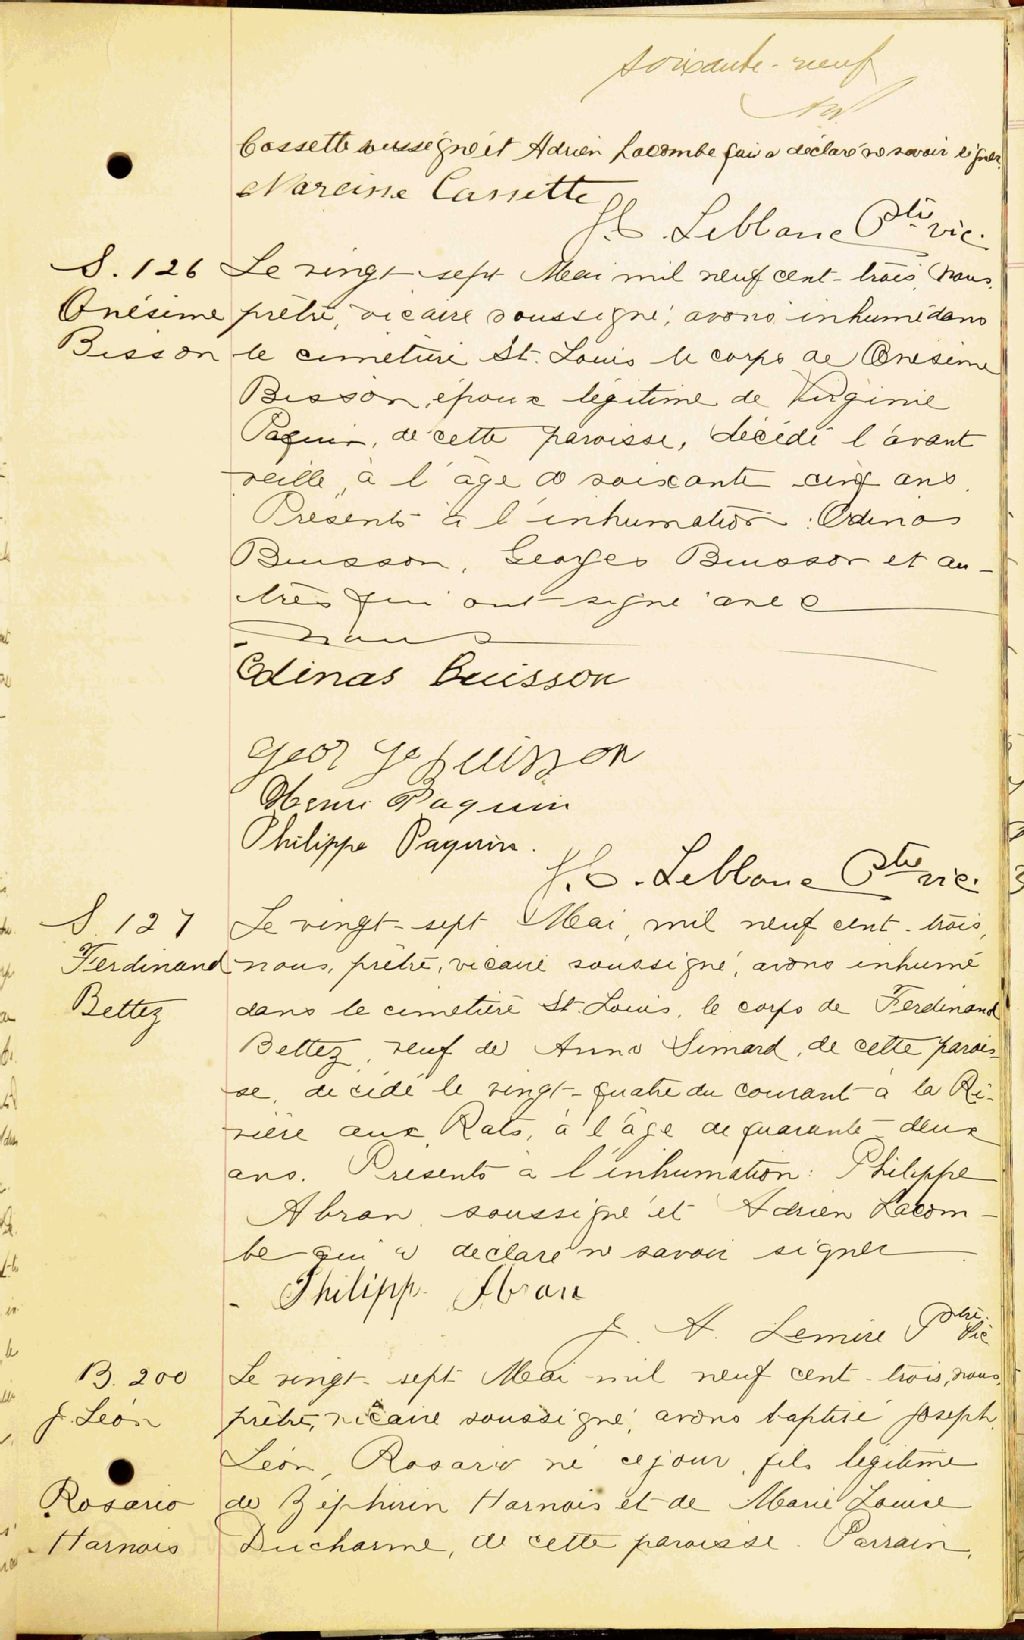 soixante-neuf
Cossette soussigné et Adrien Lacombe qui a déclaré ne savoir signer.
Narcisse Cossette
J. C. Leblanc Ptre vic.
S. 126 Le vingt-sept Mai mil neuf cent-trois, nous,
Onésime prêtre, vicaire soussigné, avons inhumé dans
Bisson le cimetière St. Louis le corps de Onésime
Bisson, époux légitime de Virginie
Paquin, de cette paroisse, décédé l'avant
veille, à l'âge de soixante cinq ans.
Présents à l'inhumation : Edinas
Buisson, Georges Buisson et au-
tres qui ont signé avec
nous
Edinas Buisson
George Buisson
Henri Paquin
Philippe Paquin.
J. C. Leblanc Ptre vic.
S. 127 Le vingt-sept Mai, mil neuf cent-trois,
Ferdinand nous, prêtre, vicaire soussigné, avons inhumé
Bettez dans le cimetière St. Louis, le corps de Ferdinand
Bettez, veuf de Anna Simard, de cette parois-
se, décédé le vingt-quatre du courant à la Ri-
vière aux Rats, à l'âge de quarante-deux
ans. Présents à l'inhumation : Philippe
Abran soussigné et Adrien Lacom-
be qui a déclaré ne savoir signer
Philipp Abran
J. A. Lemire Ptre Vic
B. 200 Le vingt-sept Mai mil neuf cent-trois, nous,
J. Léon prêtre, vicaire soussigné, avons baptisé Joseph
Léon, Rosario né ce jour, fils légitime
Rosario de Zéphirin Harnois et de Marie Louise
Harnois Ducharme, de cette paroisse. Parrain,